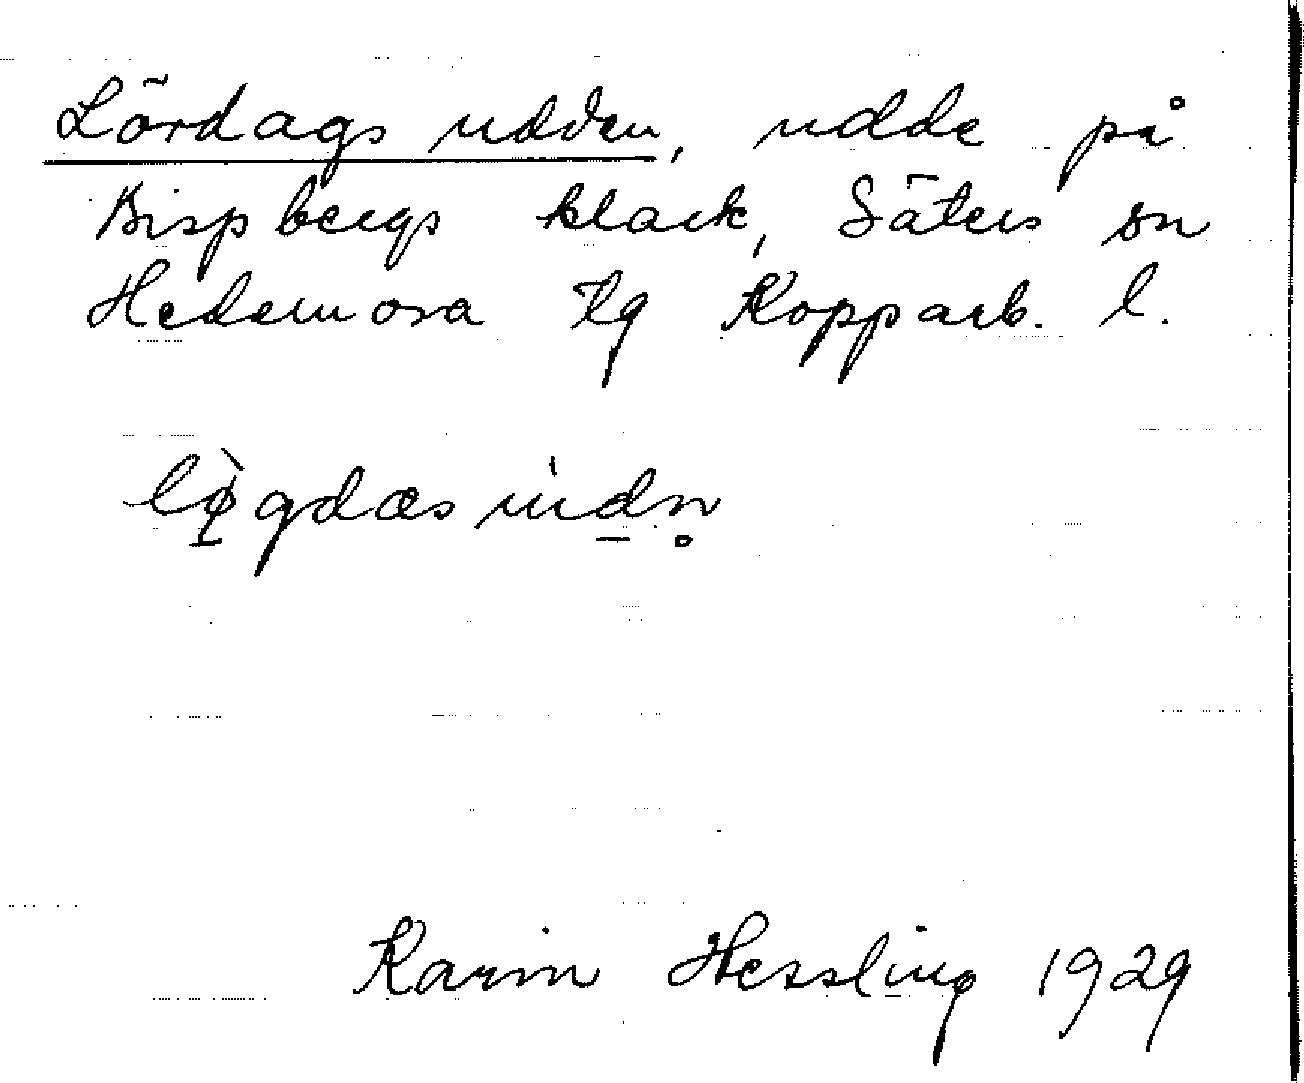 Lördags udden, udde på
Bispbergs klack, Säters sn
Hedemora Tg Kopparb. l.
lø̀gdæsudn̥
Karin Hessling 1929